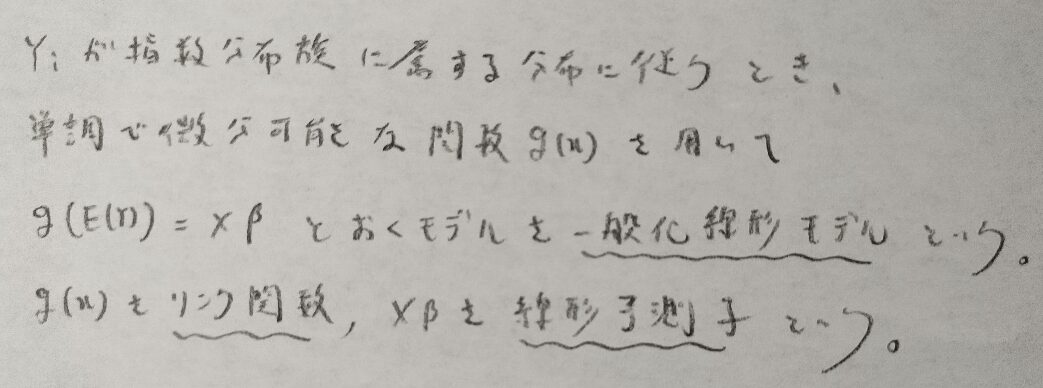 Yi が指数分布族に属する分布に従うとき、
単調で微分可能な関数 g(x) を用いて
g(E(Y)) = Xβ とおくモデルを一般化線形モデルという。
g(x) をリンク関数, Xβ を線形予測子という。